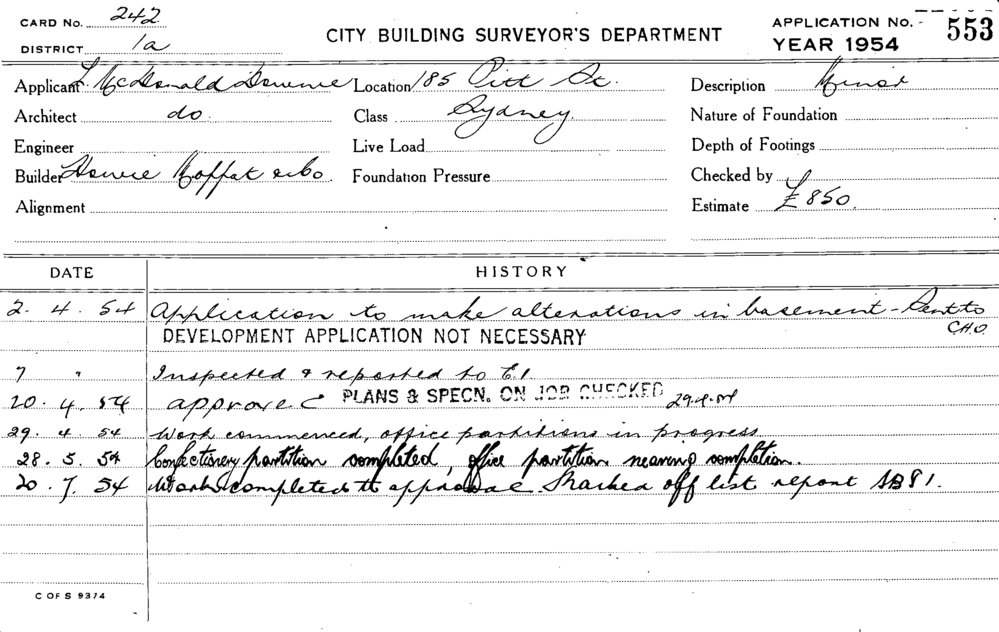 CARD No. 242
DISTRICT 1a
CITY BUILDING SURVEYOR'S DEPARTMENT
APPLICATION No. 553
YEAR 1954
Applicant L McDonald Downie Location 185 Pitt St. Description Minor
Architect do. Class Sydney Nature of Foundation
Engineer Live Load Depth of Footings
Builder Howie Moffat & Co Foundation Pressure Checked by
Alignment Estimate £850.
DATE HISTORY
2. 4. 54 Application to make alterations in basement - Sent to
C.H.O.
DEVELOPMENT APPLICATION NOT NECESSARY
7 " Inspected & reported to E.1
20. 4. 54 approved PLANS & SPECN. ON JOB CHECKED
29. 4. 54 Work commenced, office partitions in progress
28. 5. 54 Confectionery partition completed, office partition nearing completion.
20. 7. 54 Work completed to approval. Marked off list report 81.
C OF S 9374